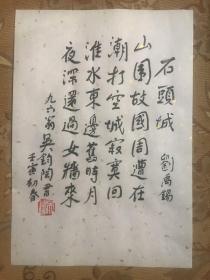 石頭城
劉禹錫
山圍故國周遭在
潮打空城寂寞回
淮水東邊舊時月
夜深還過女牆來
九六翁吳鈞陶書
壬寅初春